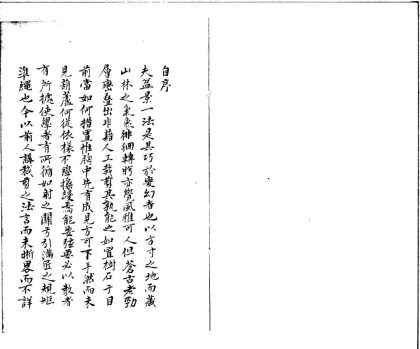 自序
夫盆景一法是其巧於變幻者也以方寸之地而藏
山林之氣象徘徊轉眄亦覺風雅可人但蒼古老勁
層巒叠出非藉人工裁剪其孰能之如置樹石于目
前當如何措置惟胸中先有成見方可下手然而未
見葫蘆何從依樣不際操縵焉能安弦要必以教者
有所據使學者有所循如射之關弓引滿匠之規矩
準繩也今以前人講裁剪之法言而未晰畧而不詳